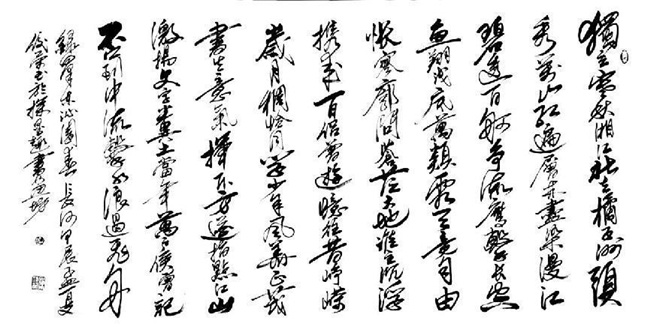 獨立寒秋湘江北去橘子洲頭
看萬山紅遍層林盡染漫江
碧透百舸爭流鷹擊長空
魚翔淺底萬類霜天競自由
悵寥廓問蒼茫大地誰主沉浮
攜來百侶曾遊憶往昔崢嶸
歲月稠恰同學少年風華正茂
書生意氣揮斥方遒指點江山
激揚文字糞土當年萬戶侯曾記
否到中流擊水浪遏飛舟
錄沁園春長沙孟夏
書於書畫坊